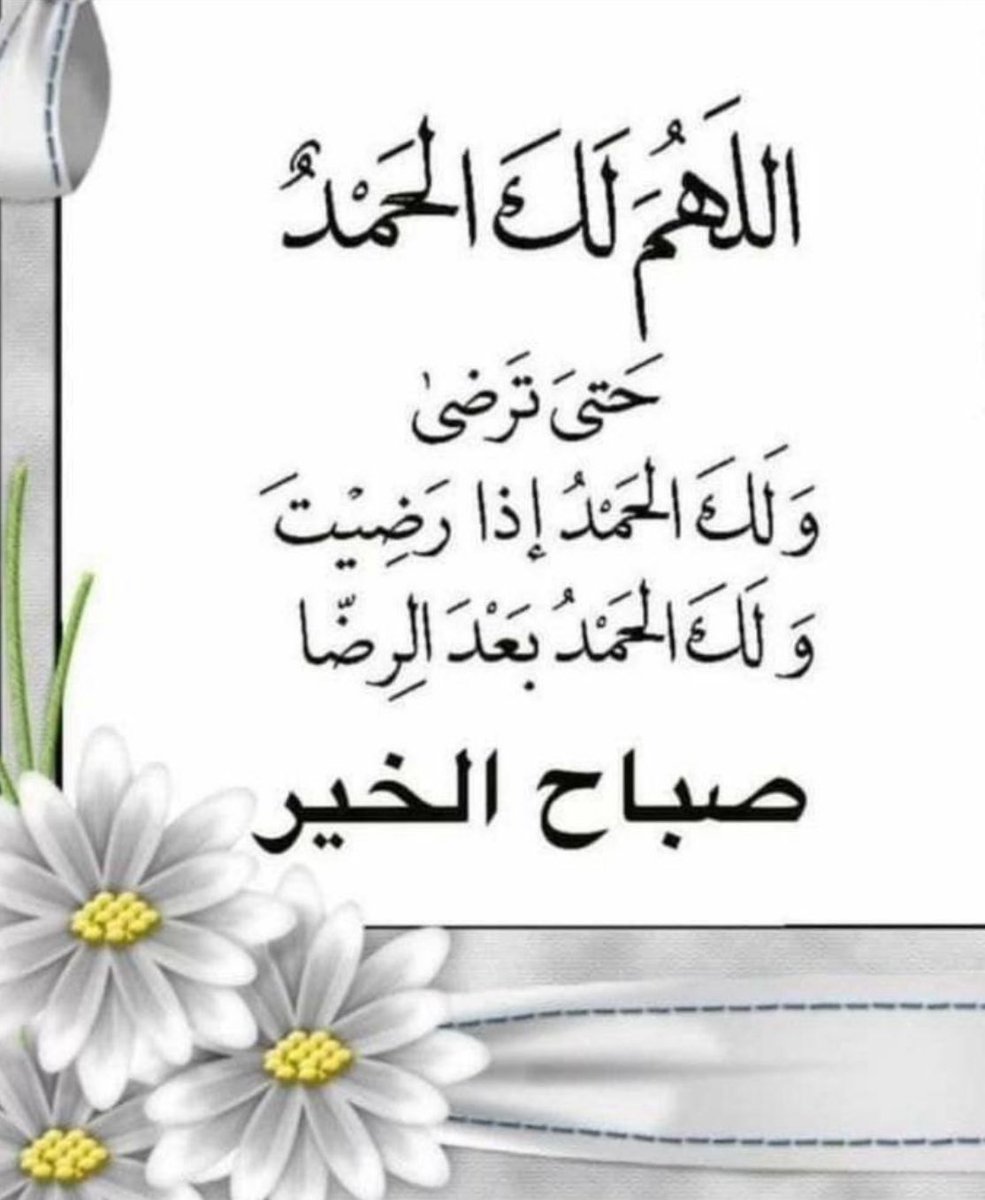 اللهُمَ لَكَ الحَمْدُ
حَتىَ تَرَضىٰ
وَ لَكَ الحَمْدُ إذا رَضِيْتَ
وَ لَكَ الحَمْدُ بَعْدَ الرِضّا
صباح الخير